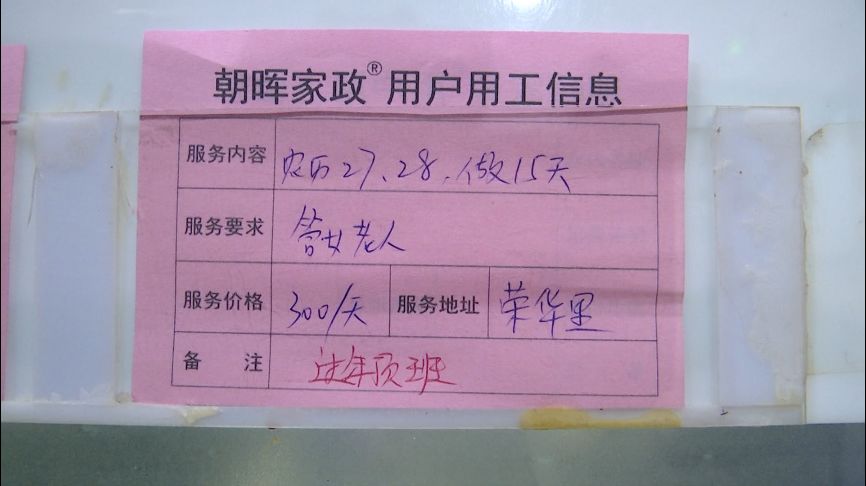 朝晖家政® 用户用工信息
服务内容 农历27、28、做15天
服务要求 管女老人
服务价格 300/天 服务地址 荣华里
备 注 过年顶班